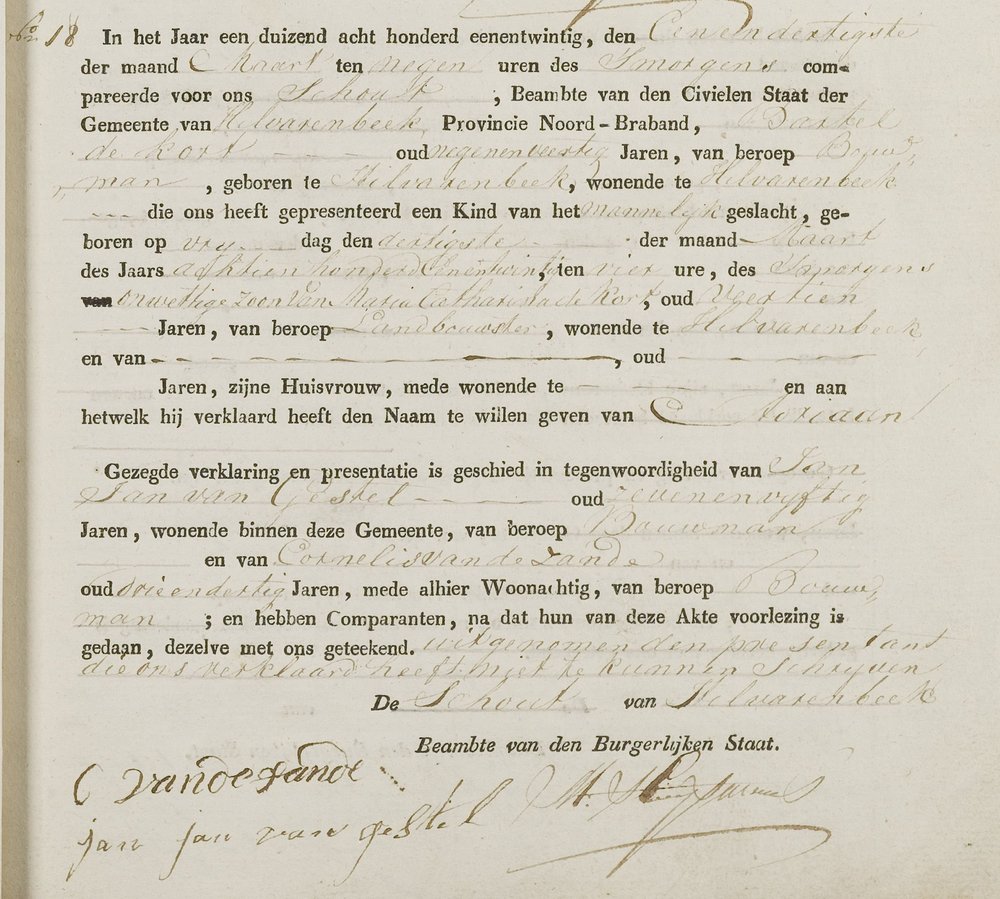 No 18 In het Jaar een duizend acht honderd eenentwintig, den Eenendertigste
der maand Maart ten negen uren des Smorgens com-
pareerde voor ons Schout , Beambte van den Civielen Staat der
Gemeente van Hilvarenbeek Provincie Noord-Braband, Bartel
de Kort oud negenenveertig Jaren, van beroep Bouw„
„man , geboren te Hilvarenbeek, wonende te Hilvarenbeek
die ons heeft gepresenteerd een Kind van het mannelijk geslacht, ge-
boren op vry dag den dertigste der maand Maart
des Jaars achtien honderd Eenentwintig, ten vier ure, des Smorgens
van onwettige zoon van Maria Catharina de Kort, oud
Jaren, van beroep Landbouwster, wonende te Hilvarenbeek
en van , oud
Jaren, zijne Huisvrouw, mede wonende te en aan
hetwelk hij verklaard heeft den Naam te willen geven van Adriaan
Gezegde verklaring en presentatie is geschied in tegenwoordigheid van Jan
Jan van Gestel oud zevenenvyftig
Jaren, wonende binnen deze Gemeente, van beroep Bouwman
en van Cornelis van de Zande
oud drieendertig Jaren, mede alhier Woonachtig, van beroep Bouw„
man ; en hebben Comparanten, na dat hun van deze Akte voorlezing is
gedaan, dezelve met ons geteekend. uitgenomen den presentant
die ons verklaard heeft niet te kunnen Schryven
De Schout van Hilvarenbeek
Beambte van den Burgerlijken Staat.
C vandesande
jan jan van gestel